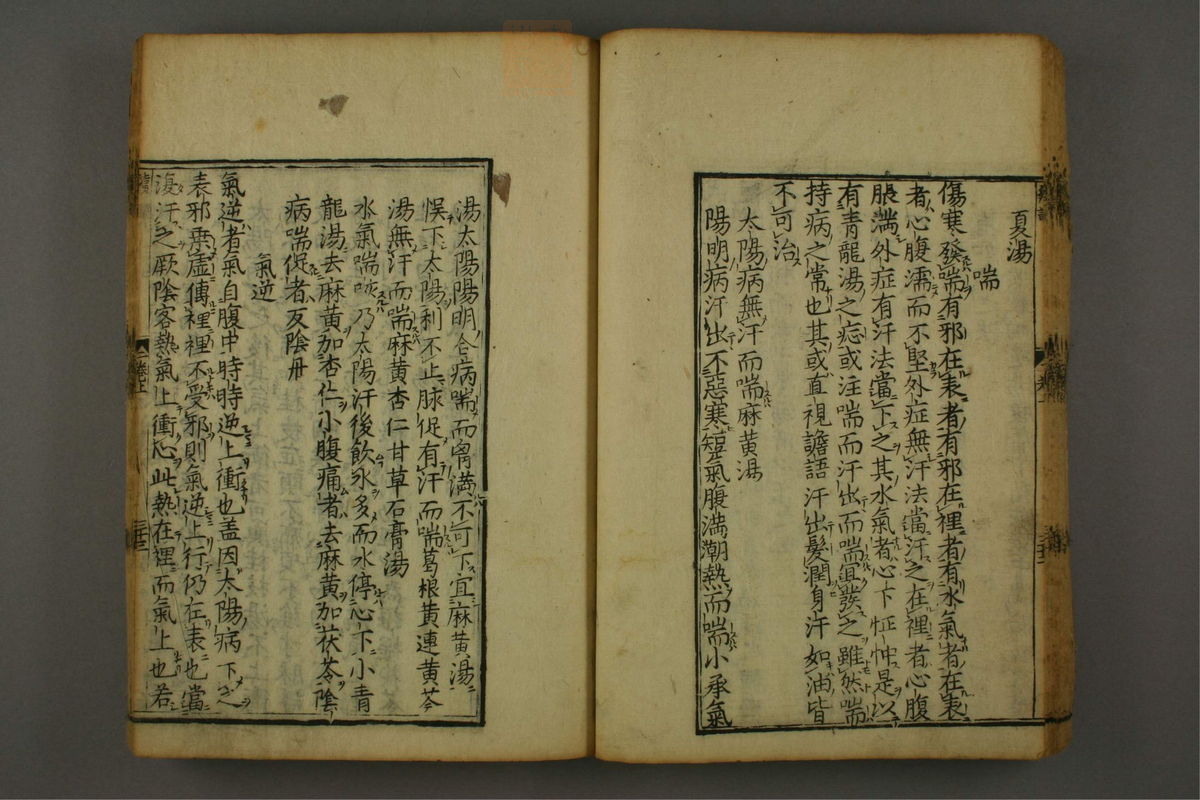 夏湯
喘
傷寒發喘有邪在表者有邪在裡者有水氣者在表
者心腹濡而不堅外症無汗法當汗之在裡者心腹
脹滿外症有汗法當下之其水氣者心下怔忡是以
有青龍湯之忌或注喘而汗出而喘宜發之雖然喘
持病之常也其或直視譫語汗出髮潤身汗如油皆
不可治
太陽病無汗而喘麻黄湯
陽明病汗出不惡寒短氣腹滿潮熱而喘小承氣
湯太陽陽明合病喘而胷滿不可下宜麻黄湯
悞下太陽利不止脉促有汗而喘葛根黄連黄芩
湯無汗而喘麻黄杏仁甘草石膏湯
水氣喘咳乃太陽汗後飲水多而水停心下小青
龍湯去麻黄加杏仁小腹痛者去麻黄加茯苓陰
病喘促者反陰丹
氣逆
氣逆者氣自腹中時時逆上衝也盖因太陽病下之
表邪乗虚傳裡裡不受邪則氣逆上行仍在表也當
復汗之厥陰客熱氣上衝心此熱在裡而氣上也若
卷上
二十二